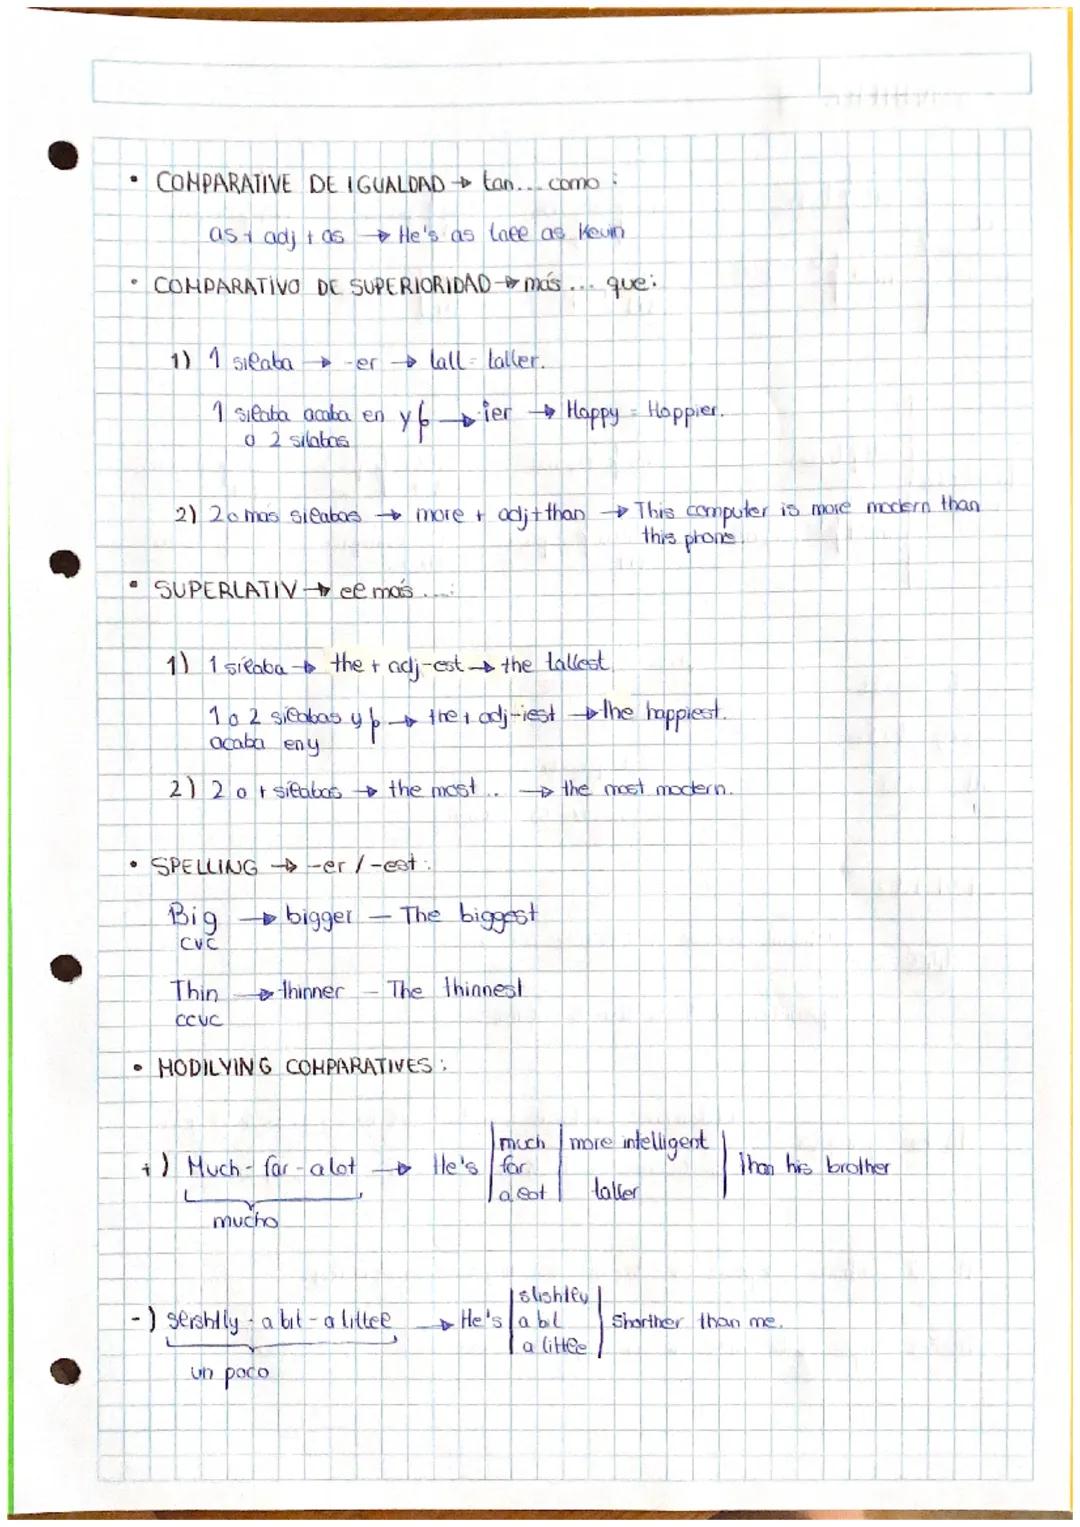 • COMPARATIVE DE IGUALDAD → tan... como :
as + adj + as → He's as tall as Kevin
• COMPARATIVO DE SUPERIORIDAD → más ... que:
1) 1 sílaba → -er → tall = taller.
1 sílaba acaba en y → ier → Happy = Happier.
o 2 sílabas
2) 2 o más sílabas → more + adj + than → This computer is more modern than
this phone.
• SUPERLATIV → el más ...:
1) 1 sílaba → the + adj-est → the tallest.
1 o 2 sílabas y → the + adj-iest → the happiest.
acaba en y
2) 2 o + sílabas → the most .. → the most modern.
• SPELLING → -er / -est :
Big → bigger – The biggest
CVC
Thin → thinner – The thinnest
CCVC
• MODILYING COMPARATIVES :
+) Much - far - a lot → He's | much far a lot | more intelligent taller | than his brother
mucho
-) slershtly - a bit - a little → He's | slishtly a bit a little | Shorther than me.
un poco